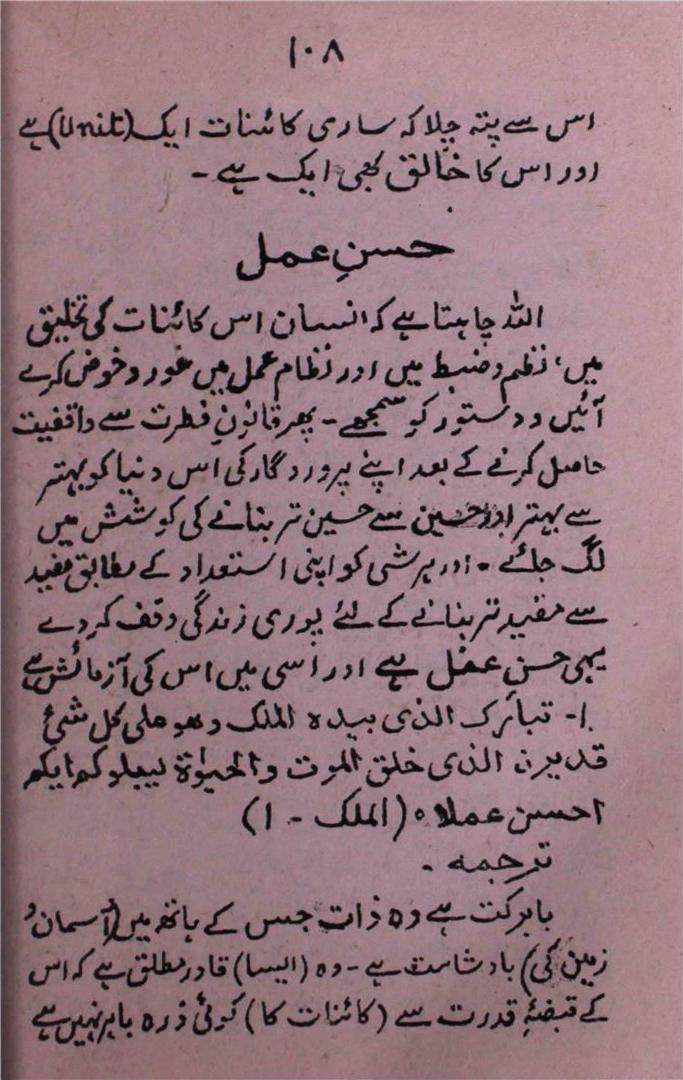 ۱۰۸
اس سے پتہ چلا کہ ساری کائنات ایک (Unit) ہے
اور اس کا خالق بھی ایک ہے ۔
حسنِ عمل
اللہ چاہتا ہے کہ انسان اس کائنات کی تخلیق
میں، نظم و ضبط میں اور نظام عمل میں غور و خوض کرے
آئیں و دستور کو سمجھے ۔ پھر قانونِ فطرت سے واقفیت
حاصل کرنے کے بعد اپنے پروردگار کی اس دنیا کو بہتر
سے بہتر اور حسین سے حسین تر بنانے کی کوشش میں
لگ جائے ۔ اور ہر شی کو اپنی استعداد کے مطابق مفید
سے مفید تر بنانے کے لئے پوری زندگی وقف کر دے
یہی حسنِ عمل ہے اور اسی میں اس کی آزمائش ہے
۱۔ تبارک الذی بیدہ الملک وھو علی کل شئ
قدیرن الذی خلق الموت والحیوٰۃ لیبلوکم ایکم
احسن عملاہ (الملک ۔ ۱)
ترجمہ ۔
بابرکت ہے وہ ذات جس کے ہاتھ میں (آسمان و
زمین کی) بادشاہت ہے ۔ وہ (ایسا) قادر مطلق ہے کہ اس
کے قبضۂِ قدرت سے (کائنات کا) کوئی ذرہ باہر نہیں ہے